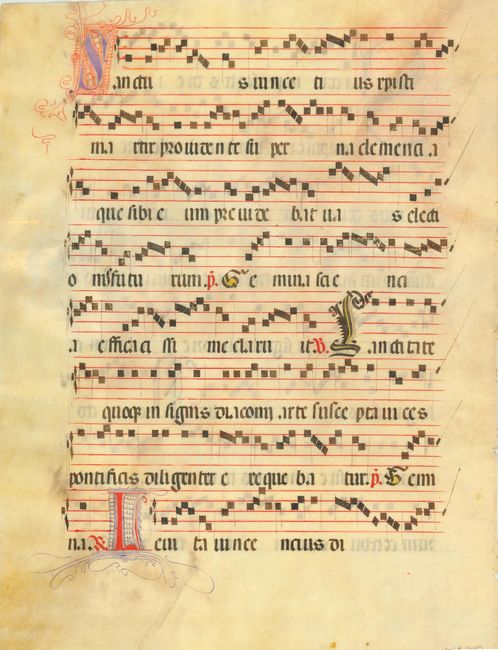 Sanctu s uince ti us xpisti
ma rtir prouiden te su per na clemencia
que sibi e um preuide bat ua s electi
o nis futu rum. p. Ge mina scie nci
a efficaci ssi me claru it. V. Sanctitate
quoq in signis diaconi arte susce pta uices
pontificis diligenter e xeque ba tur. p. Gemi
na. R. Leui ta uince ncius di